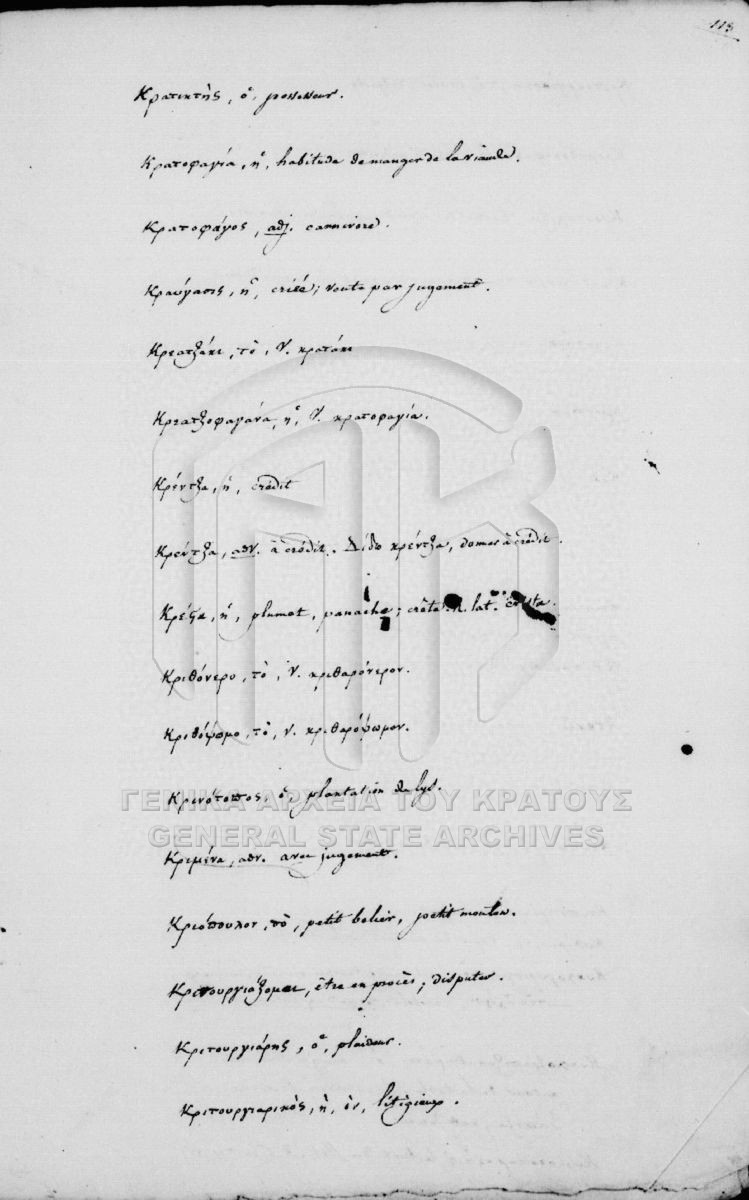 118
Κρατικτής, ὁ, possesseur.
Κρατοφαγία, ἡ, habitude de manger de la viande.
Κρατοφάγος, adj. carnivore.
Κραύγασις, ἡ, criée; vente par jugement.
Κρεατζάκι, τὸ, V. κρατάκι
Κρεατζοφαγάνα, ἡ, V. κρατοφαγία.
Κρέντζα, ἡ, crédit
Κρέντζα, adv. à crédit. Δίδω κρέντζα, donner à crédit.
Κρέςα, ἡ, plumet, panache; crête. R. lat. crista.
Κριθόνερο, τὸ, V. κριθαρόνερον.
Κριθόψωμο, τὸ, V. κριθαρόψωμον.
Κρινότοπος, ὁ plantation de lys.
ΓΕΝΙΚΑ ΑΡΧΕΙΑ ΤΟΥ ΚΡΑΤΟΥΣ
GENERAL STATE ARCHIVES
Κριμένα, adv. avec jugement.
Κριόπουλον, τὸ, petit belier, petit mouton.
Κριτουργιάζομαι, être en procès; disputer
Κριτουργιάρης, ὁ, plaideur.
Κριτουργιαρικὸς, ἡ, ὸν, litigieux.